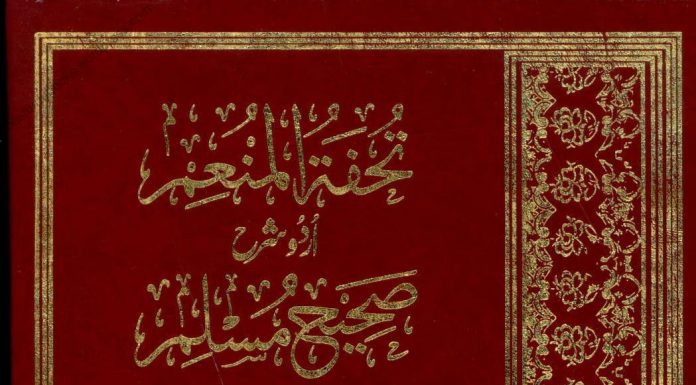 تُحفَةُ المُنْعِمْ
اُردُو شرح
صَحِيْح مُسْلِمْ